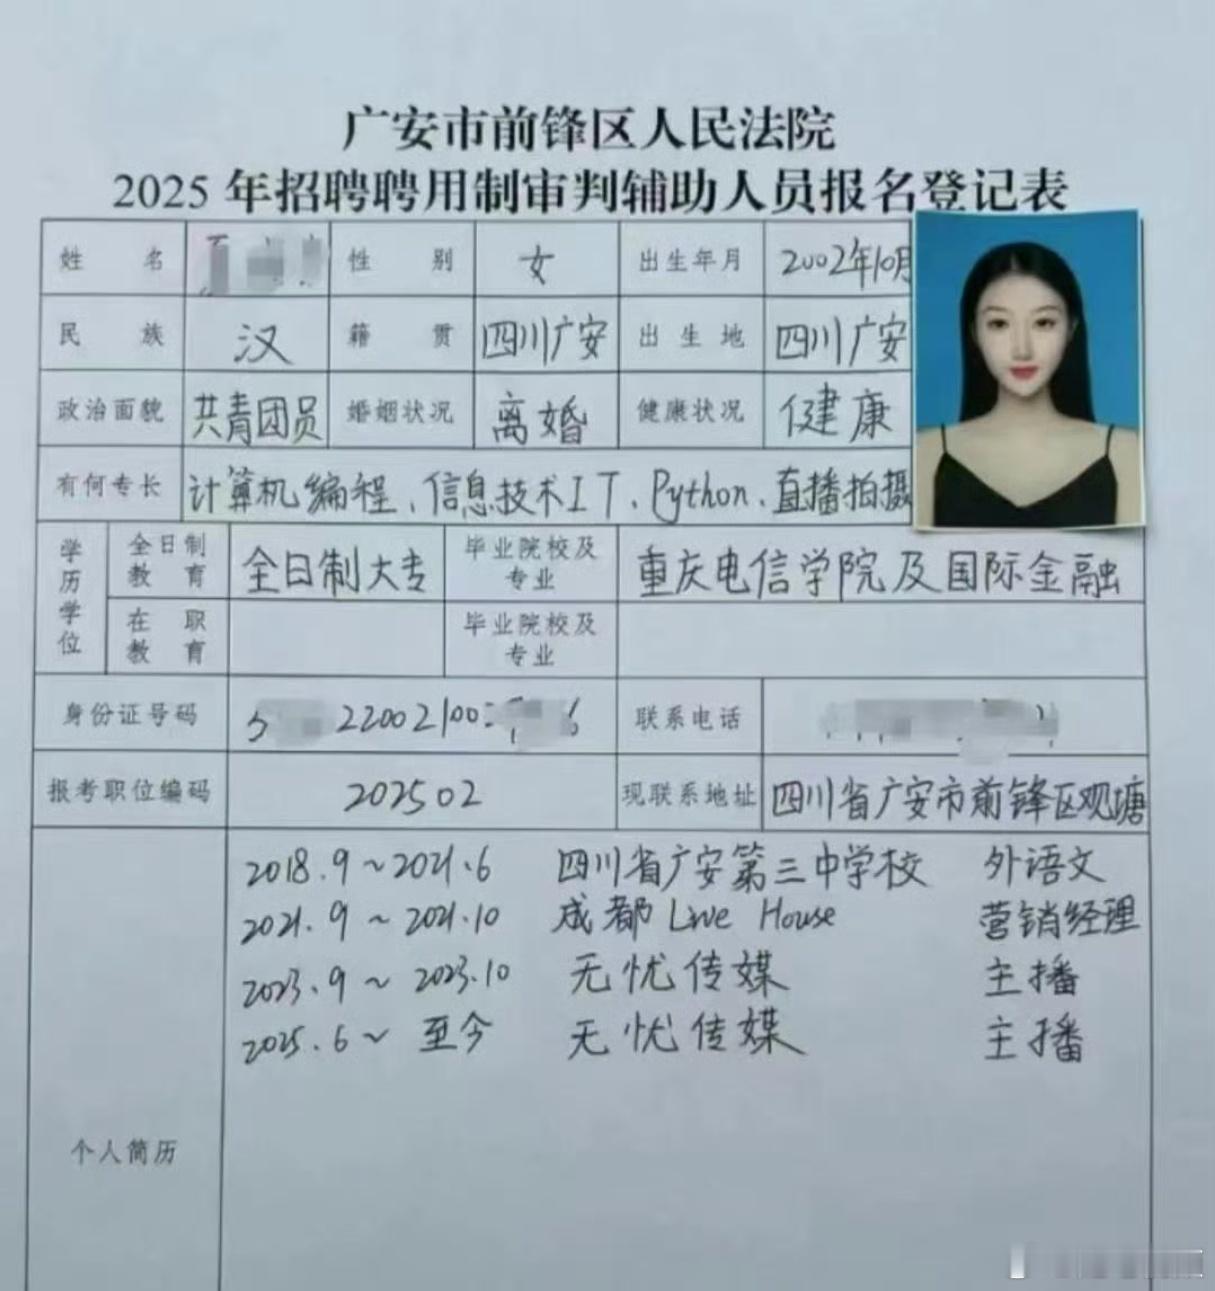 广安市前锋区人民法院
2025年招聘聘用制审判辅助人员报名登记表
姓名 性别 女 出生年月 2002年10月
民族 汉 籍贯 四川广安 出生地 四川广安
政治面貌 共青团员 婚姻状况 离婚 健康状况 健康
有何专长 计算机编程、信息技术IT、Python、直播拍摄
学历学位 全日制教育 全日制大专 毕业院校及专业 重庆电信学院及国际金融
在职教育 毕业院校及专业
身份证号码 联系电话
报考职位编码 202502 现联系地址 四川省广安市前锋区观塘
个人简历
2018.9~2021.6 四川省广安第三中学校 外语文
2021.9~2021.10 成都Live House 营销经理
2023.9~2023.10 无忧传媒 主播
2025.6~至今 无忧传媒 主播